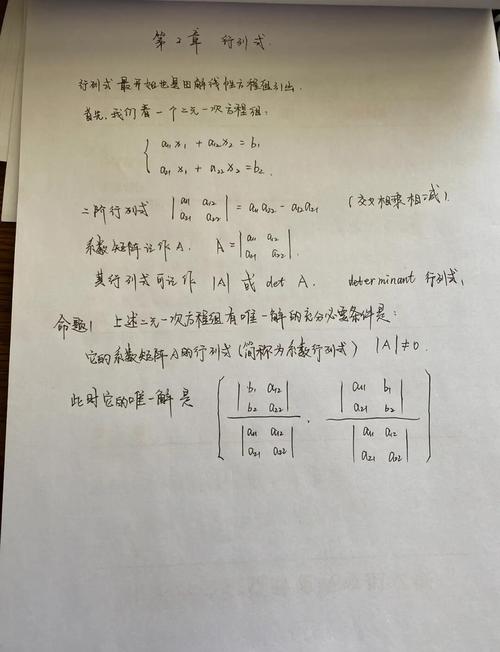 第2章 行列式.
行列式最开始也是由解线性方程组引出.
首先,我们看一个二元一次方程组:
{ a₁₁x₁ + a₁₂x₂ = b₁
a₂₁x₁ + a₂₂x₂ = b₂.
二阶行列式 |a₁₁ a₁₂ a₂₁ a₂₂| = a₁₁a₂₂ - a₁₂a₂₁ (交叉相乘相减).
系数矩阵记作A. A = |a₁₁ a₁₂ a₂₁ a₂₂|.
其行列式可记作 |A| 或 det A. determinant 行列式,
命题1 上述二元一次方程组有唯一解的充分必要条件是:
它的系数矩阵A的行列式(简称为系数行列式) |A|≠0.
此时它的唯一解是 ( |b₁ a₁₂ b₂ a₂₂| / |a₁₁ a₁₂ a₂₁ a₂₂| , |a₁₁ b₁ a₂₁ b₂| / |a₁₁ a₁₂ a₂₁ a₂₂| )